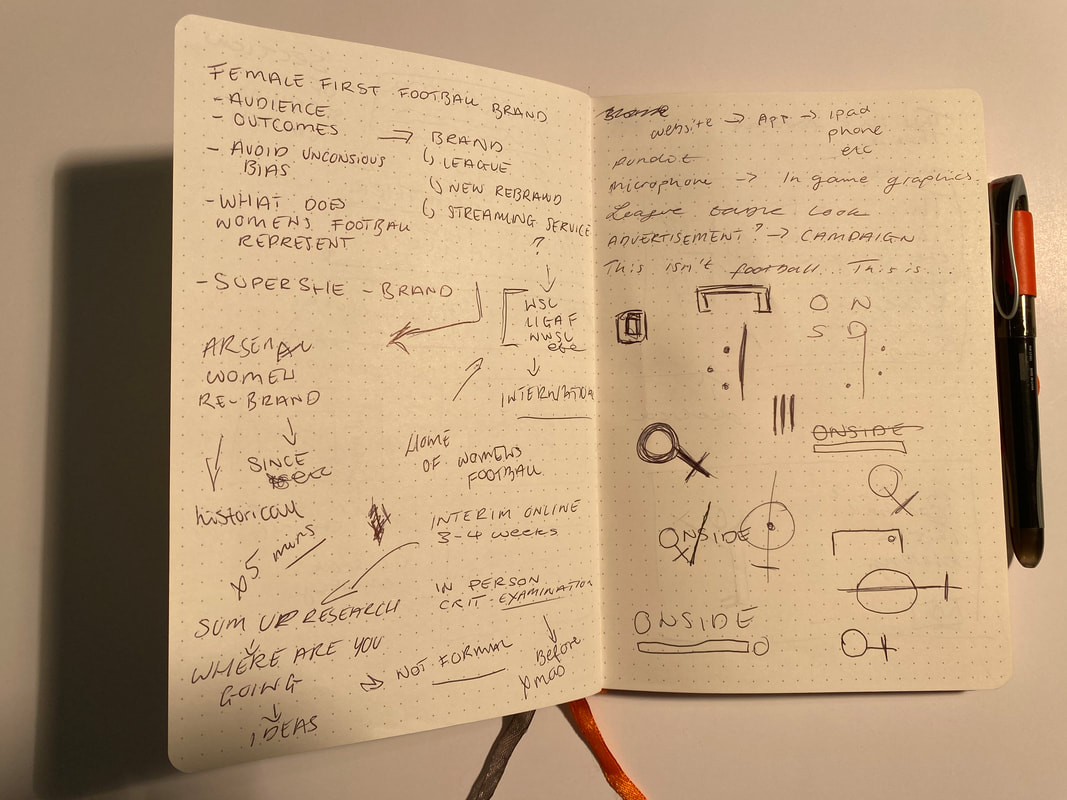 FEMALE FIRST FOOTBALL BRAND
- AUDIENCE
- OUTCOMES
- AVOID UNCONSIOUS
BIAS
- WHAT DOES
WOMENS FOOTBALL
REPRESENT
→ BRAND
LEAGUE
NEW REBRAND
STREAMLING SERVICE
?
- SUPERSHE - BRAND
WSL
LIGA F
NWSL
etc
INTERNATIONAL
ARSENAL
WOMEN
RE-BRAND
SINCE
historicall
HOME
OF WOMENS
FOOTBALL
INTERIM ONLINE
3-4 weeks
5 mins
IN PERSON
CRIT EXAMINATION
Before
xmas
SUM UP RESEARCH
WHERE ARE YOU
GOING
IDEAS
→ NOT FORMAL
website → APP → ipad
phone
etc
microphone → In game graphics.
League
LOOK
ADVERTISEMENT? → CAMPAIGN
This isn't football... This is...
O N
S D
ONSIDE
ONSIDE
ONSIDE